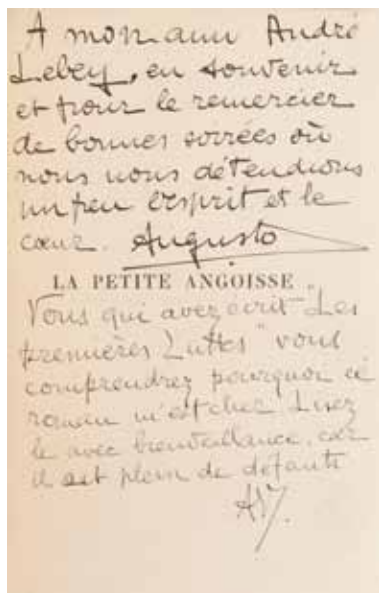 A mon ami André
Lebey, en souvenir
et pour le remercier
de bonnes soirées où
nous nous détendions
un peu l'esprit et le
cœur. Augusto
LA PETITE ANGOISSE
Vous qui avez écrit "Les
premières Luttes" vous
comprendrez pourquoi ce
roman m'est cher. Lisez
le avec bienveillance, car
il est plein de défauts